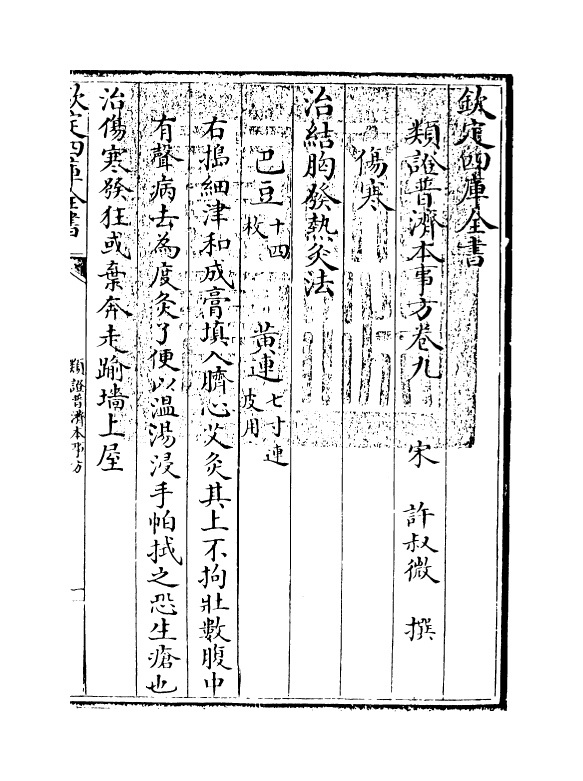 欽定四庫全書
類證普濟本事方卷九
宋 許叔微 撰
傷寒
治結胸發熱灸法
巴豆十四枚 黃連七寸連皮用
右搗細津和成膏填入臍心艾灸其上不拘壯數腹中
有聲病去為度灸了便以溫湯浸手帕拭之恐生瘡也
治傷寒發狂或棄奔走踰墻上屋
欽定四庫全書
類證普濟本事方
一